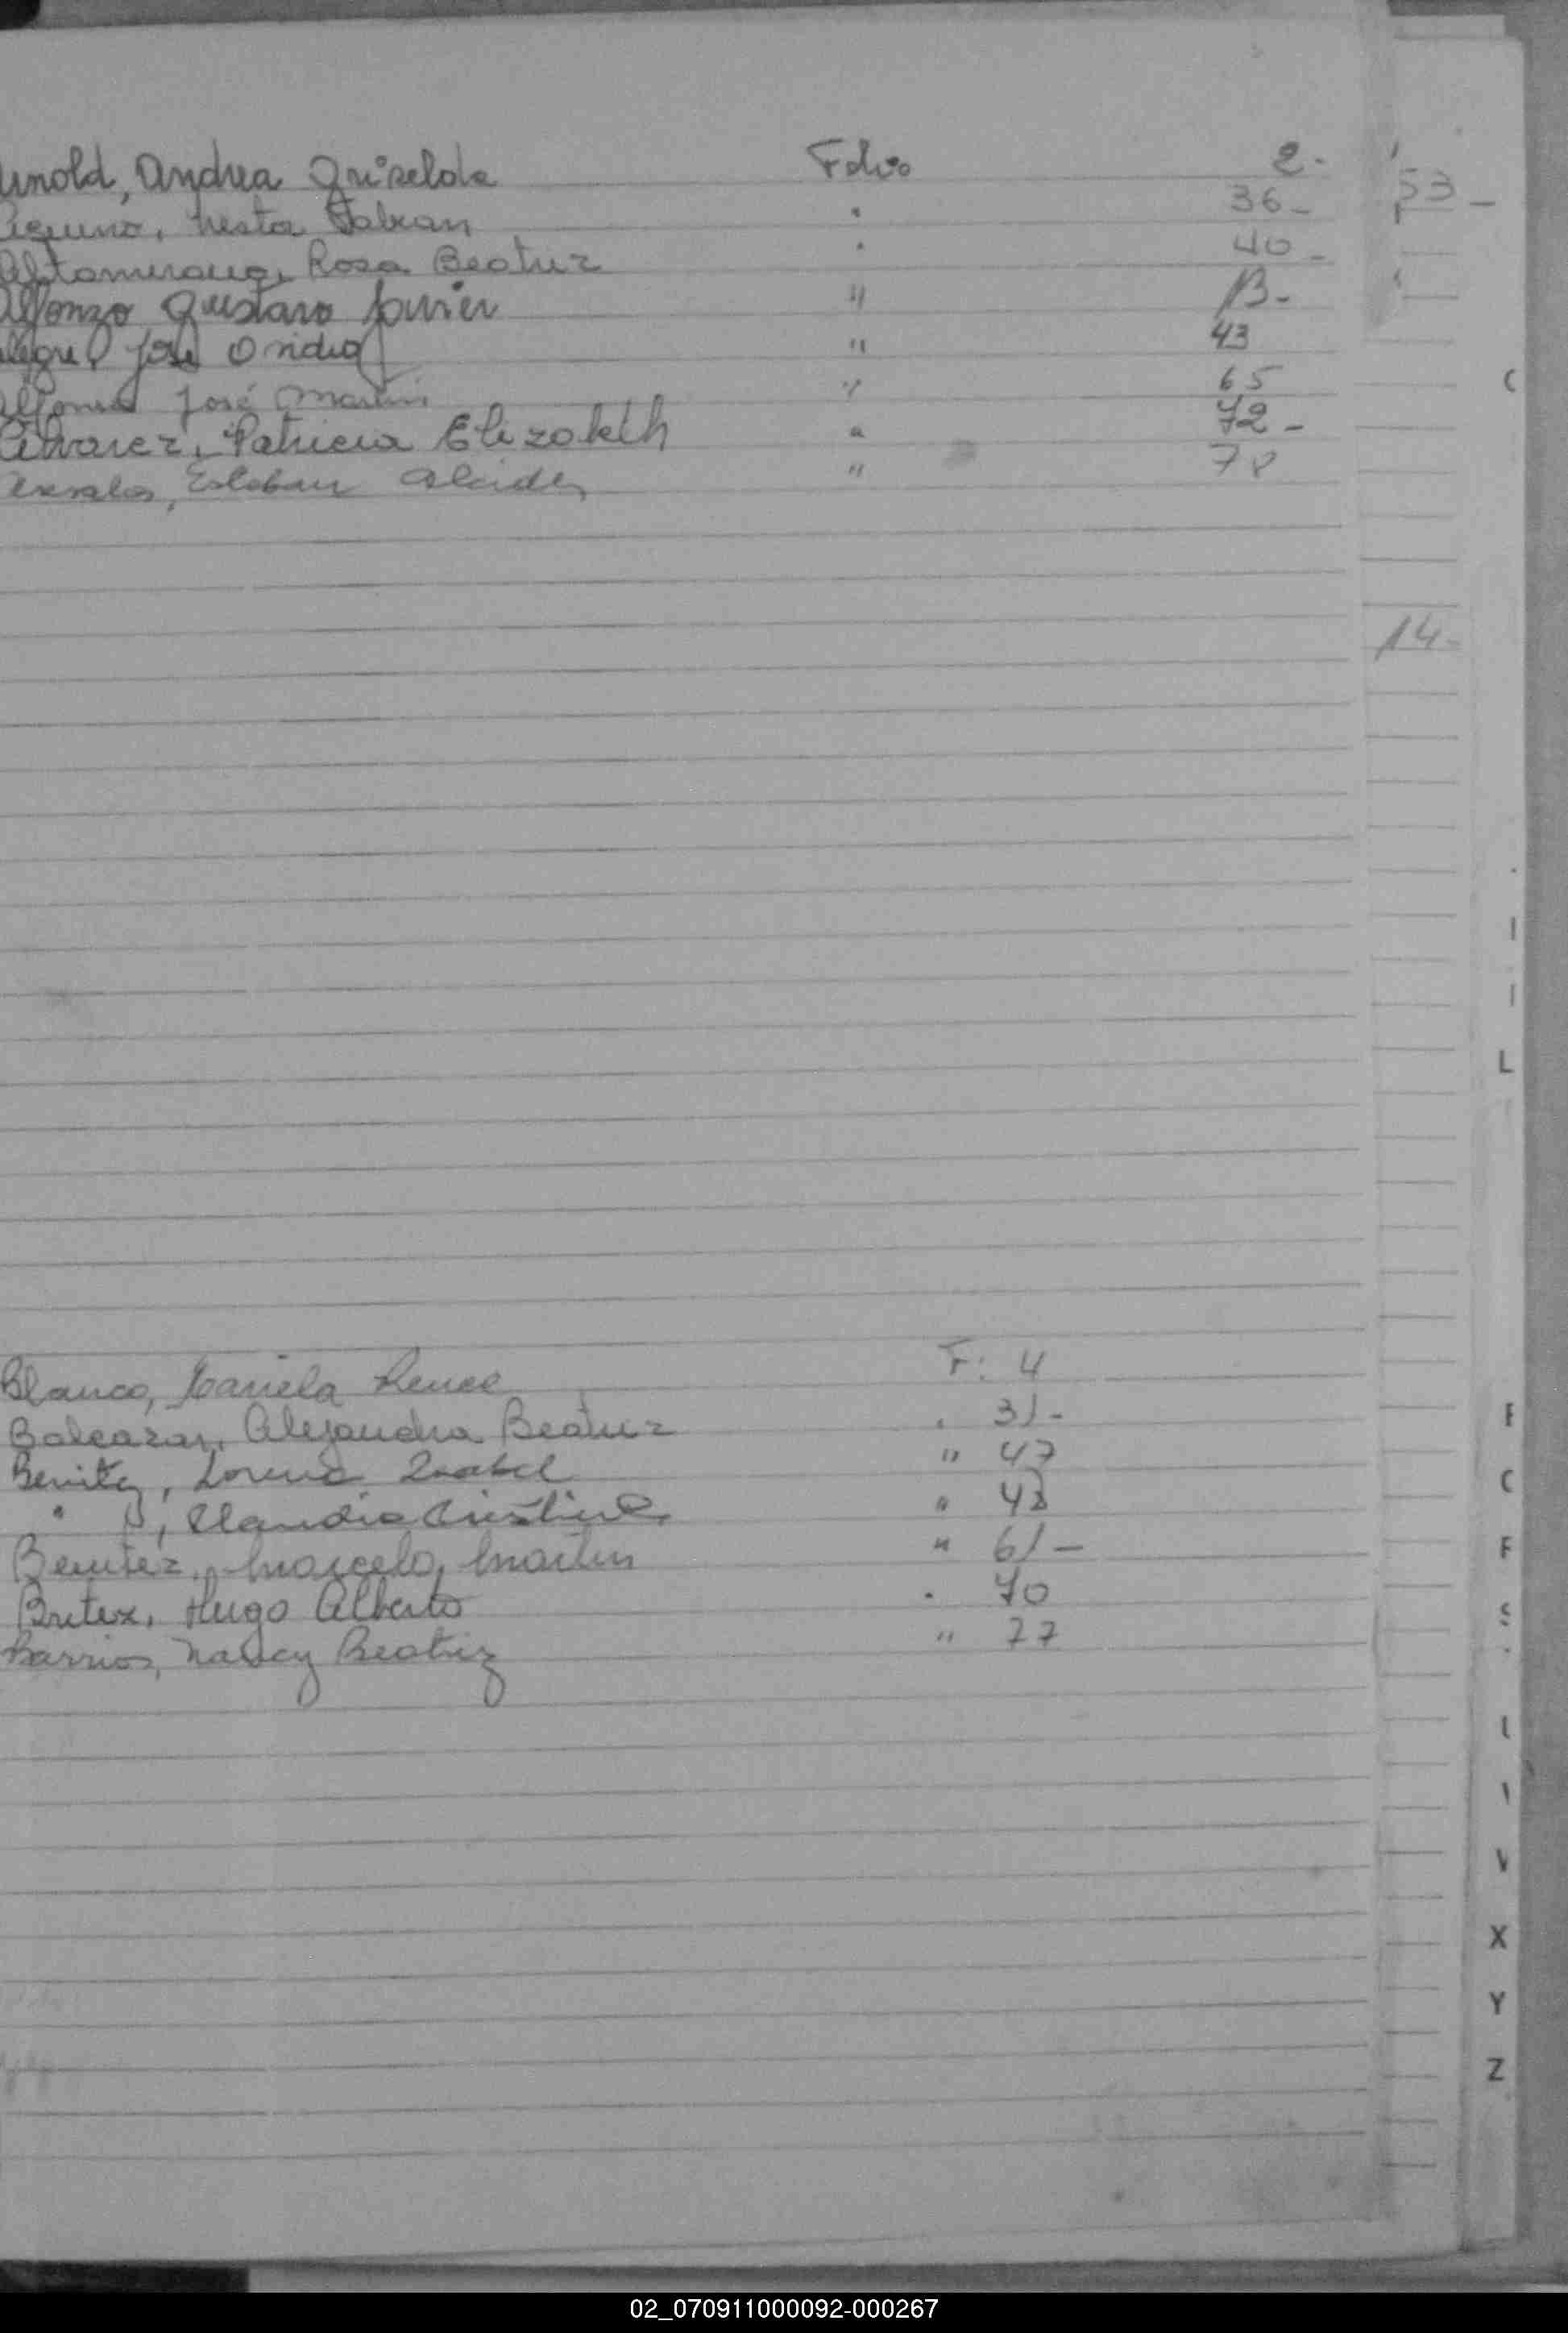 Arnold, Andrea Griselda Folio 2-
Aquino, Nestor Fabian " 36-
Altamirano, Rosa Beatriz " 40-
Alfonzo Gustavo Javier " 13-
Alegre José Ovidio " 43
Alfonso José Martin " 65
Alvarez, Patricia Elizabeth " 72-
Esteban Alcides " 78
53-
14-
Blanco, Mariela Renee F: 4
Balcazar, Alejandra Beatriz " 31-
Benitez, Lorena Isabel " 47
" , Claudia Cristina " 48
Benitez, Marcelo Martin " 61-
Britez, Hugo Alberto " 70
Barrios, Nancy Beatriz " 77
C
L
X
Y
Z
02_070911000092-000267